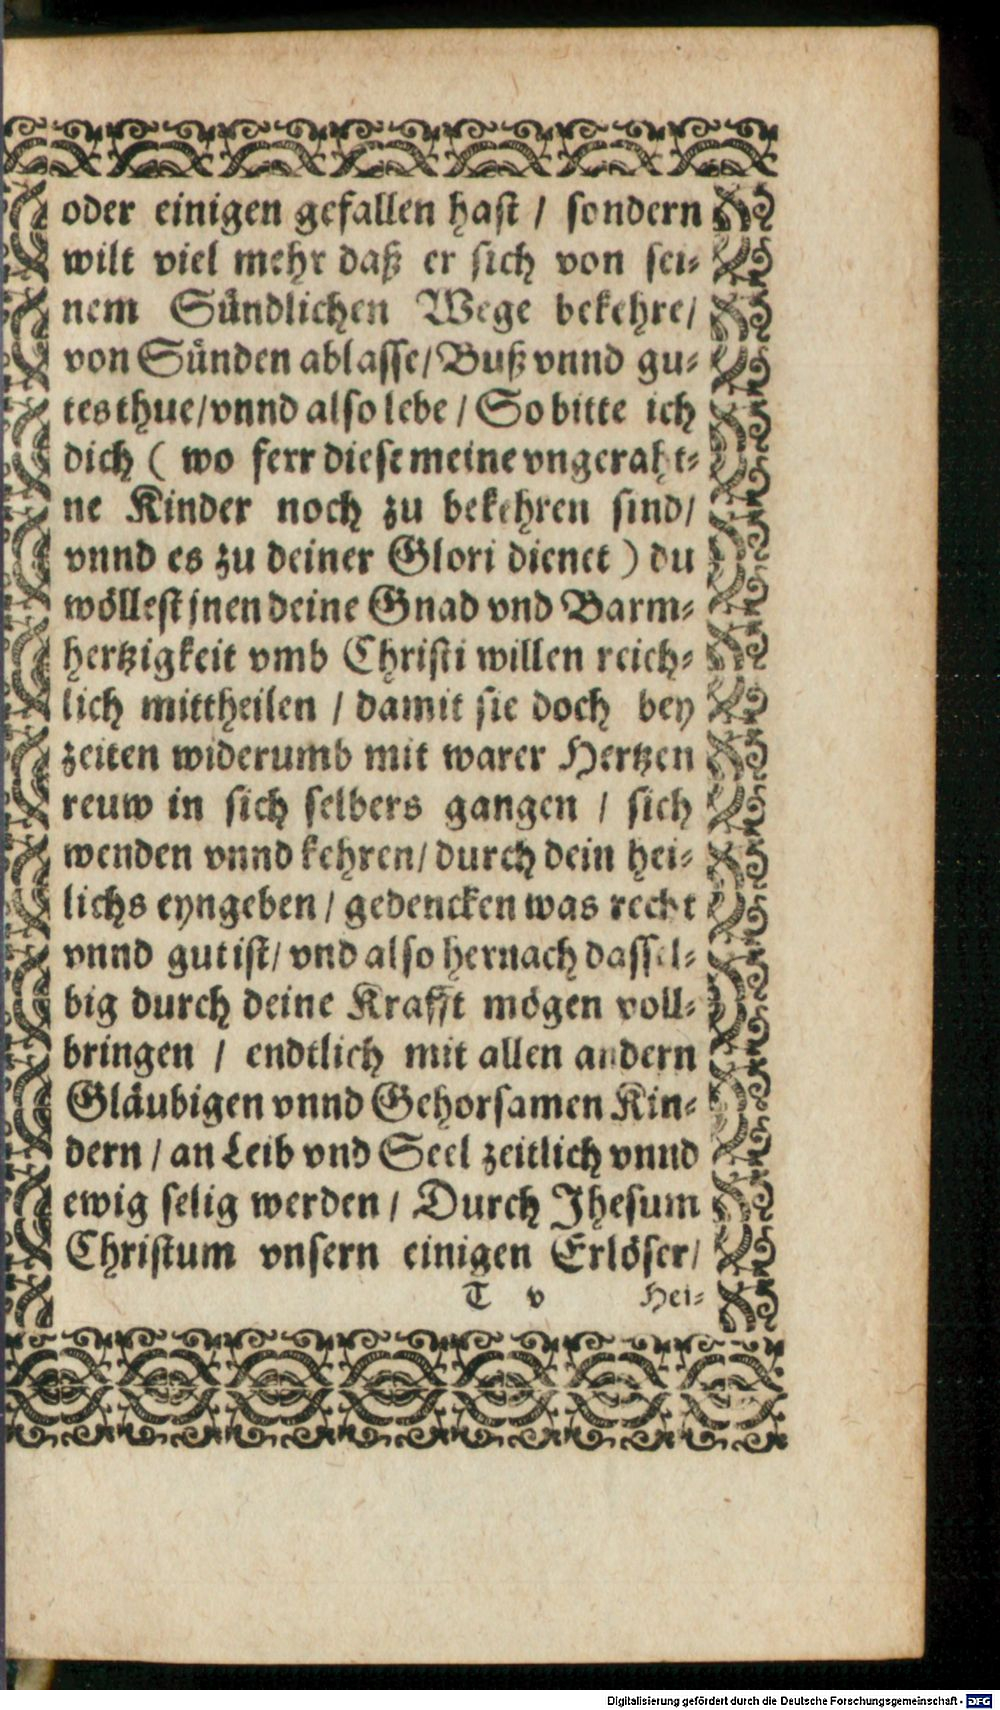 oder einigen gefallen haſt / ſondern
wilt viel mehr daß er ſich von ſei⸗
nem Sündlichen Wege bekehre/
von Sünden ablaſſe/Buß vnnd gu⸗
tes thue/vnnd alſo lebe / So bitte ich
dich ( wo ferr dieſe meine vngeraht⸗
ne Kinder noch zu bekehren ſind/
vnnd es zu deiner Glori dienet ) du
wölleſt jnen deine Gnad vnd Barm⸗
hertzigkeit vmb Chriſti willen reich⸗
lich mittheilen / damit ſie doch bey
zeiten widerumb mit warer Hertzen
reuw in ſich ſelbers gangen / ſich
wenden vnnd kehren/ durch dein hei⸗
lichs eyngeben / gedencken was recht
vnnd gut iſt/ vnd alſo hernach daſſel⸗
big durch deine Krafft mögen voll⸗
bringen / endtlich mit allen andern
Gläubigen vnnd Gehorſamen Kin⸗
dern / an Leib vnd Seel zeitlich vnnd
ewig ſelig werden / Durch Jheſum
Chriſtum vnſern einigen Erlöſer/
T v Hei⸗
Digitalisierung gefördert durch die Deutsche Forschungsgemeinschaft - DFG